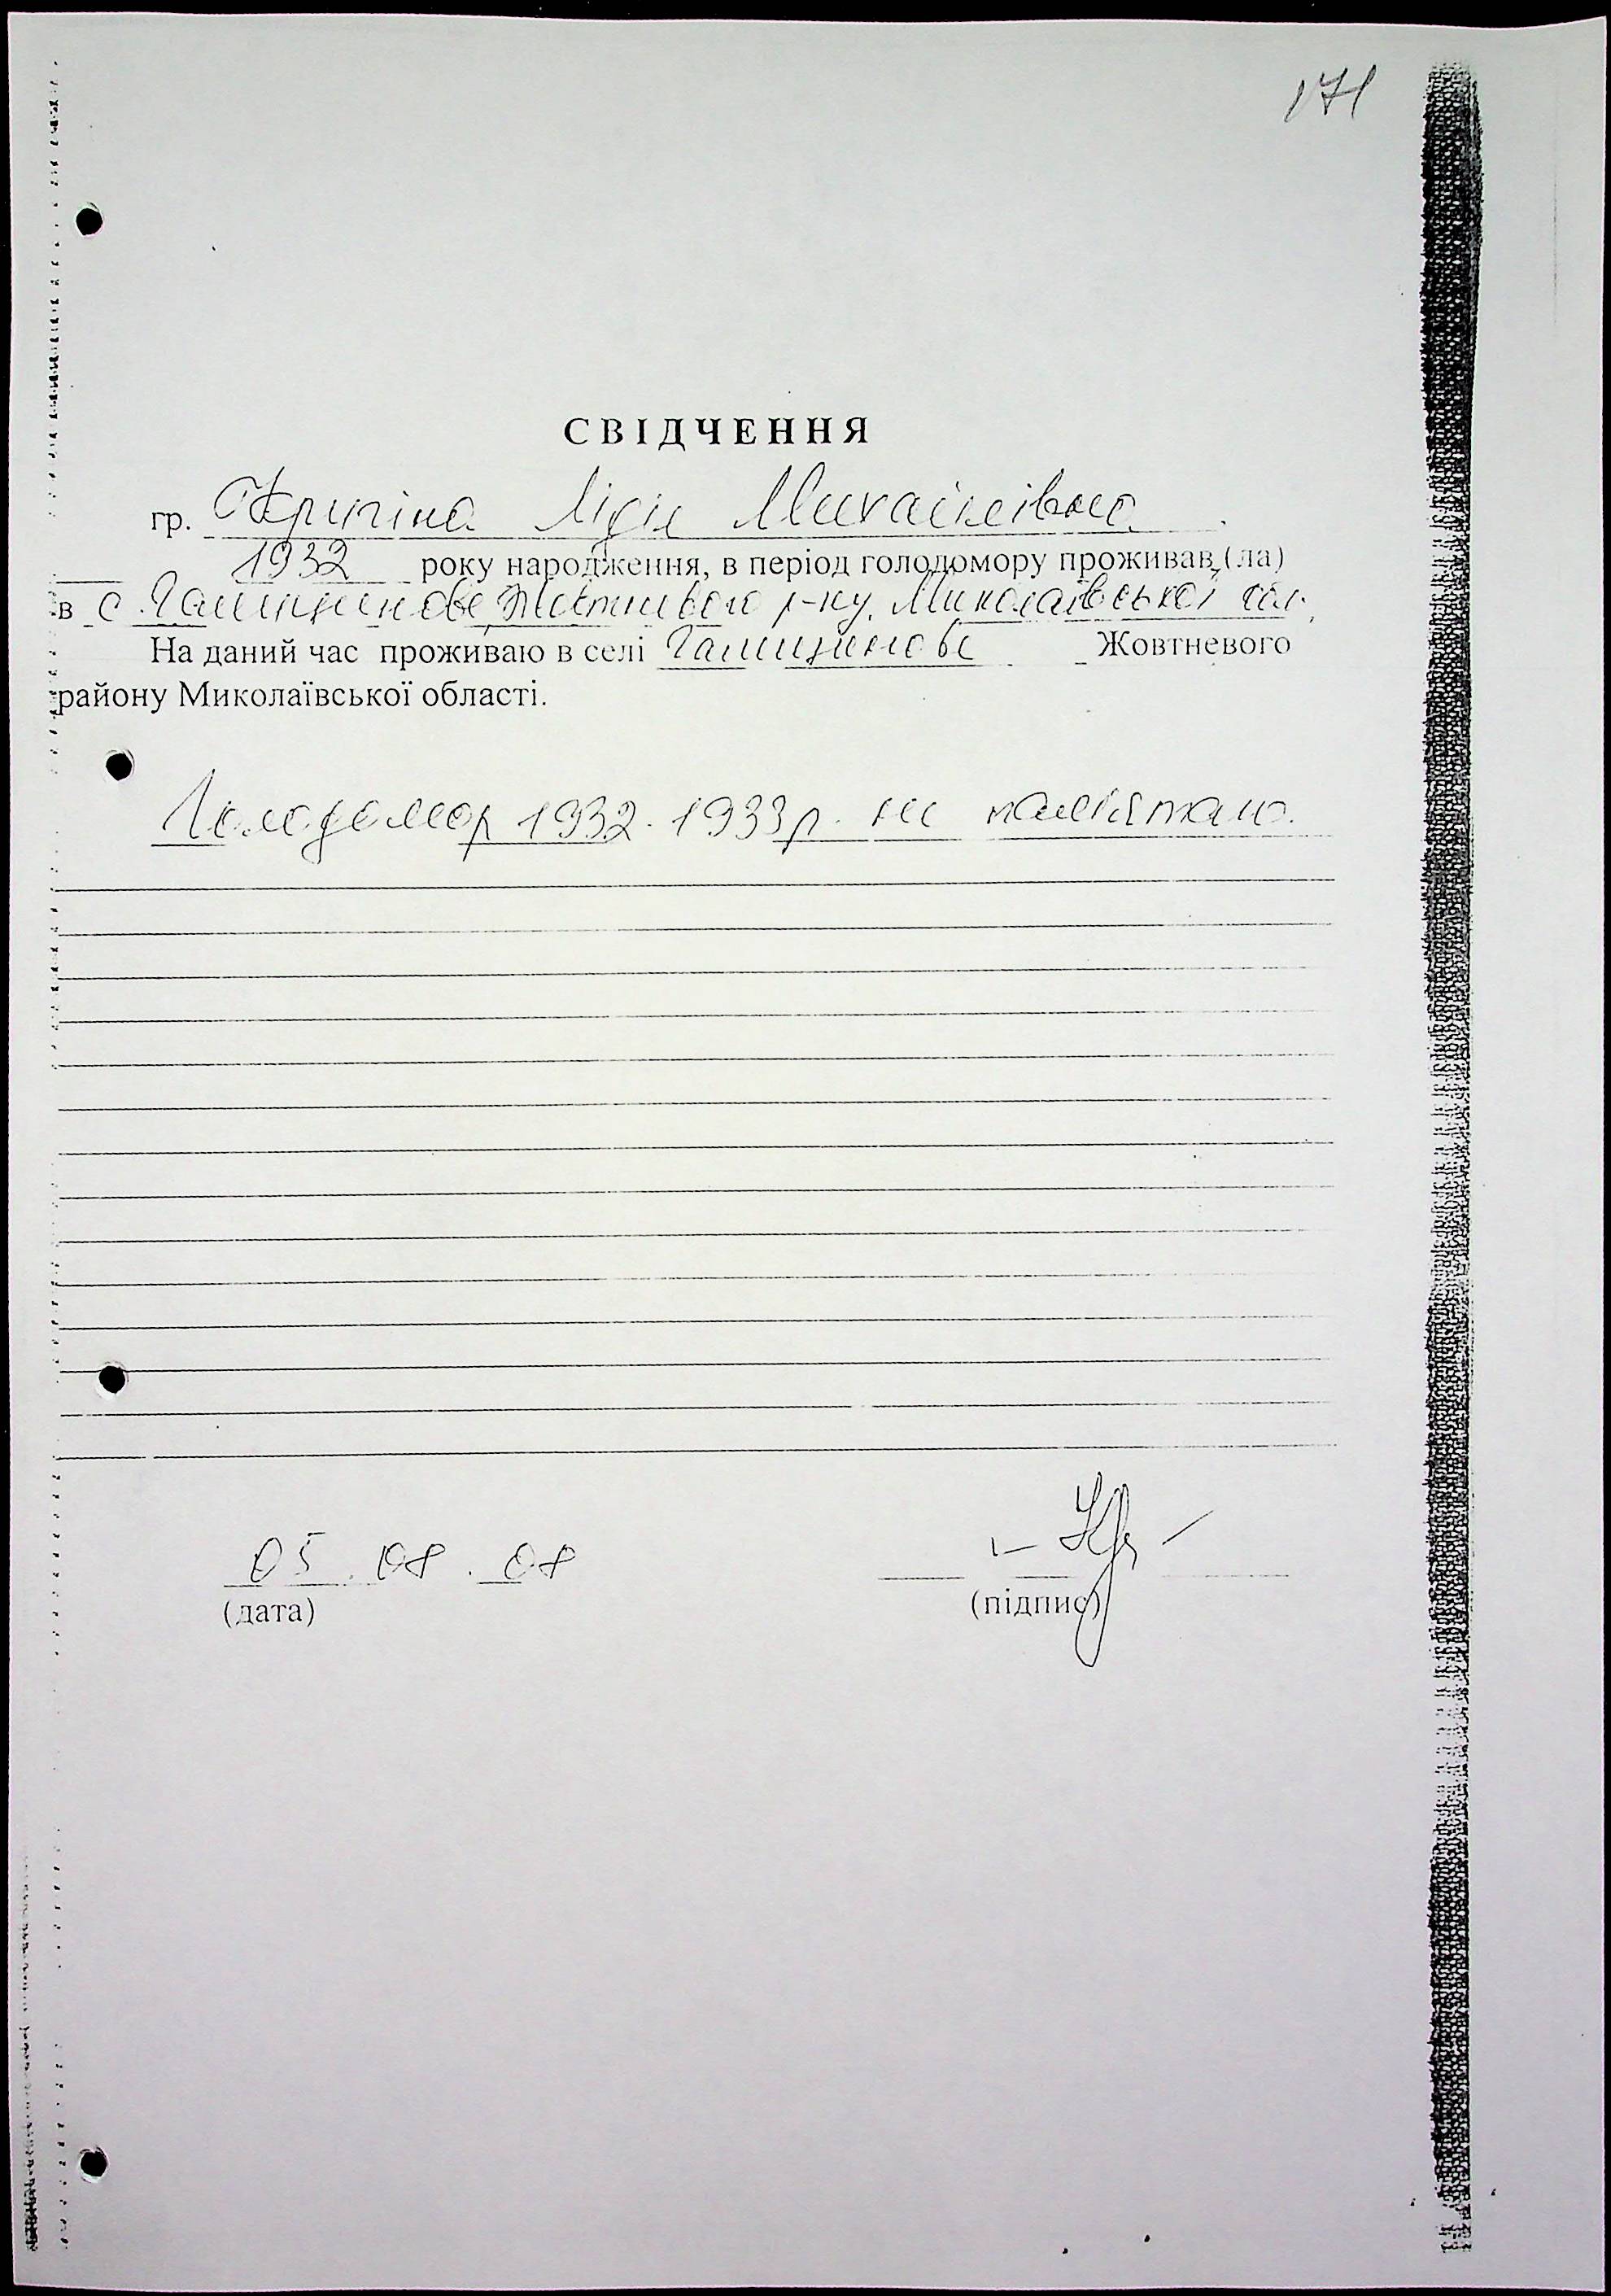 171
СВІДЧЕННЯ
гр. Лідія Михайлівна
1932 року народження, в період голодомору проживав (ла)
в с. Галицинове Жовтневого р-ну, Миколаївської обл.
На даний час проживаю в селі Галицинове Жовтневого
району Миколаївської області.
Голодомор 1932-1933 р. не пам'ятаю.
05.08.08
(дата) (підпис)